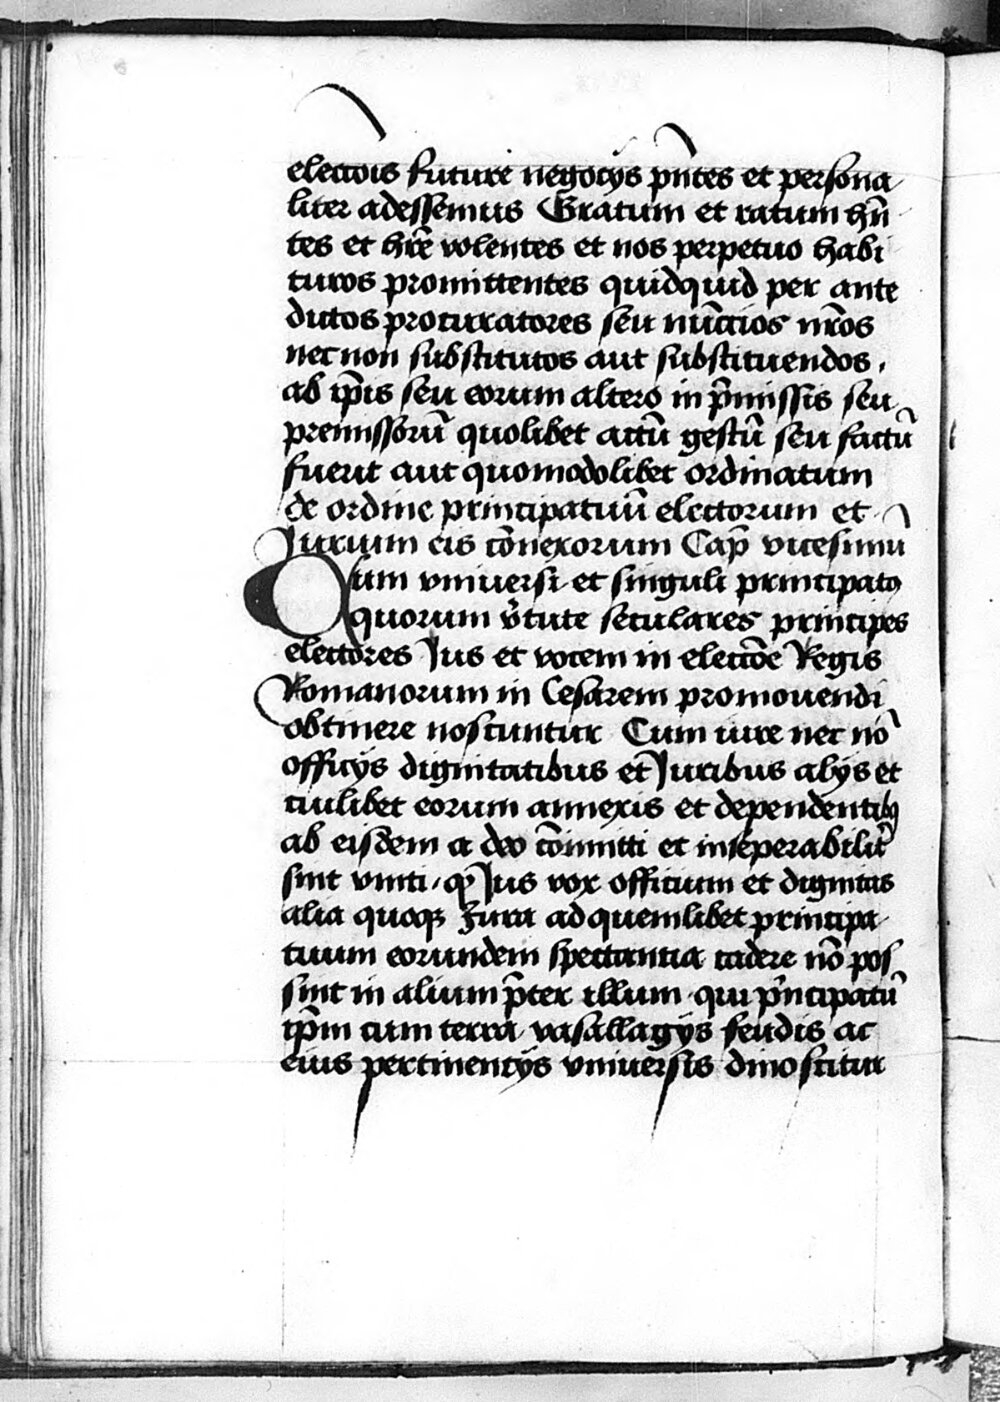 electōis future negocijs p̄ntes et persona
liter adessemus Gratum et ratum hn̄
tes et hr̄e volentes et nos perpetuo habi
turos promittentes quidquid per ante
dictos procuratores seu nūccios nr̄os
nec non substitutos aut substituendos
ab ip̄is seu eorum altero in p̄missis seu
premissorū quolibet actū gestū seu factū
fuerit aut quomodolibet ordinatum
de ordine principatuū electorum et
Jurium eis cōnexorum Cap̄ vicesimū
Qum vniuersi et singuli principatꝯ
quorum v̄tute seculares principes
electores Jus et vocem in electōe Regis
Romanorum in Cesarem promouendi
obtinere noscuntur Cum iure nec nō
officijs dignitatibus et Juribus alijs et
cuilibet eorum annexis et dependentibꝯ
ab eisdem a deo cōiuncti et inseperabilit̄
sint vniti ꝙ Jus vox officium et dignitas
alia quoqꝫ Jura ad quemlibet principa
tuum eorundem spectantia cadere nō pos
sint in alium p̄ter illum qui p̄ncipatū
ip̄m cum terra vasallagijs feudis ac
eius pertinencijs vniuersis dinoscitur